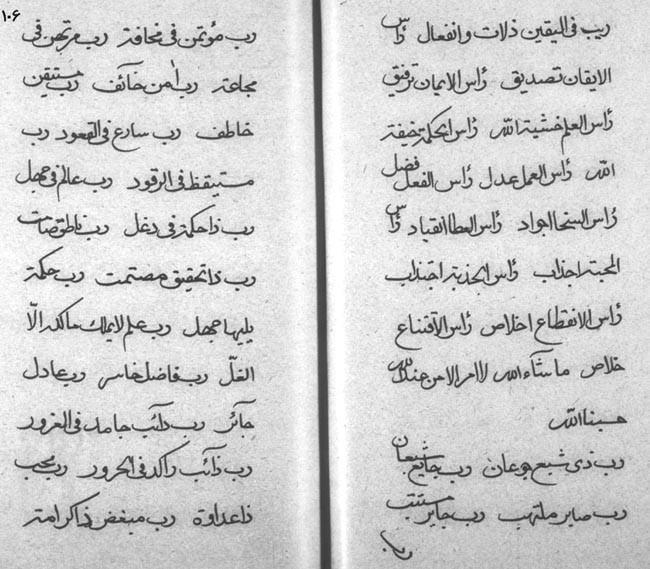 ريب فى اليقين ذلات وانفعال رأس
الايقان تصديق رأس الايمان ترفيق
رأس العلم خشية الله رأس الحكمة خيفة
الله رأس العمل عدل رأس الفعل فضل
رأس السخا الجواد رأس العطا انقياد رأس
المحبة اجذاب رأس الجذبة اجتذاب
رأس الانقطاع اخلاص رأس الاقتناع
خلاص ما شآء الله لا امر الا من عند الله
حسبنا الله
رب ذى شبع جوعان رب جايع شبعان
رب صابر ملتهب رب جاير مستتب
رب
١٠٦
رب مؤتمن فى مخافة رب مرتهن فى
مجاعة رب امن خآئف رب مستيقن
خاطف رب سارع فى القعود رب
مستيقظ فى الرقود رب عالم فى جهل
رب ذا حكمة فى دغل رب ناطق صامت
رب ذا تحقيق مصتمت رب حكمة
يليها جهل رب علم لا يملك مالكه الّا
الغلّ رب فاضل خاسر رب عادل
جآئر رب دآئب جامد فى الغرور
رب ذآئب راكد فى الحرور رب محب
ذا عداوة رب مبغض ذاكر امتر